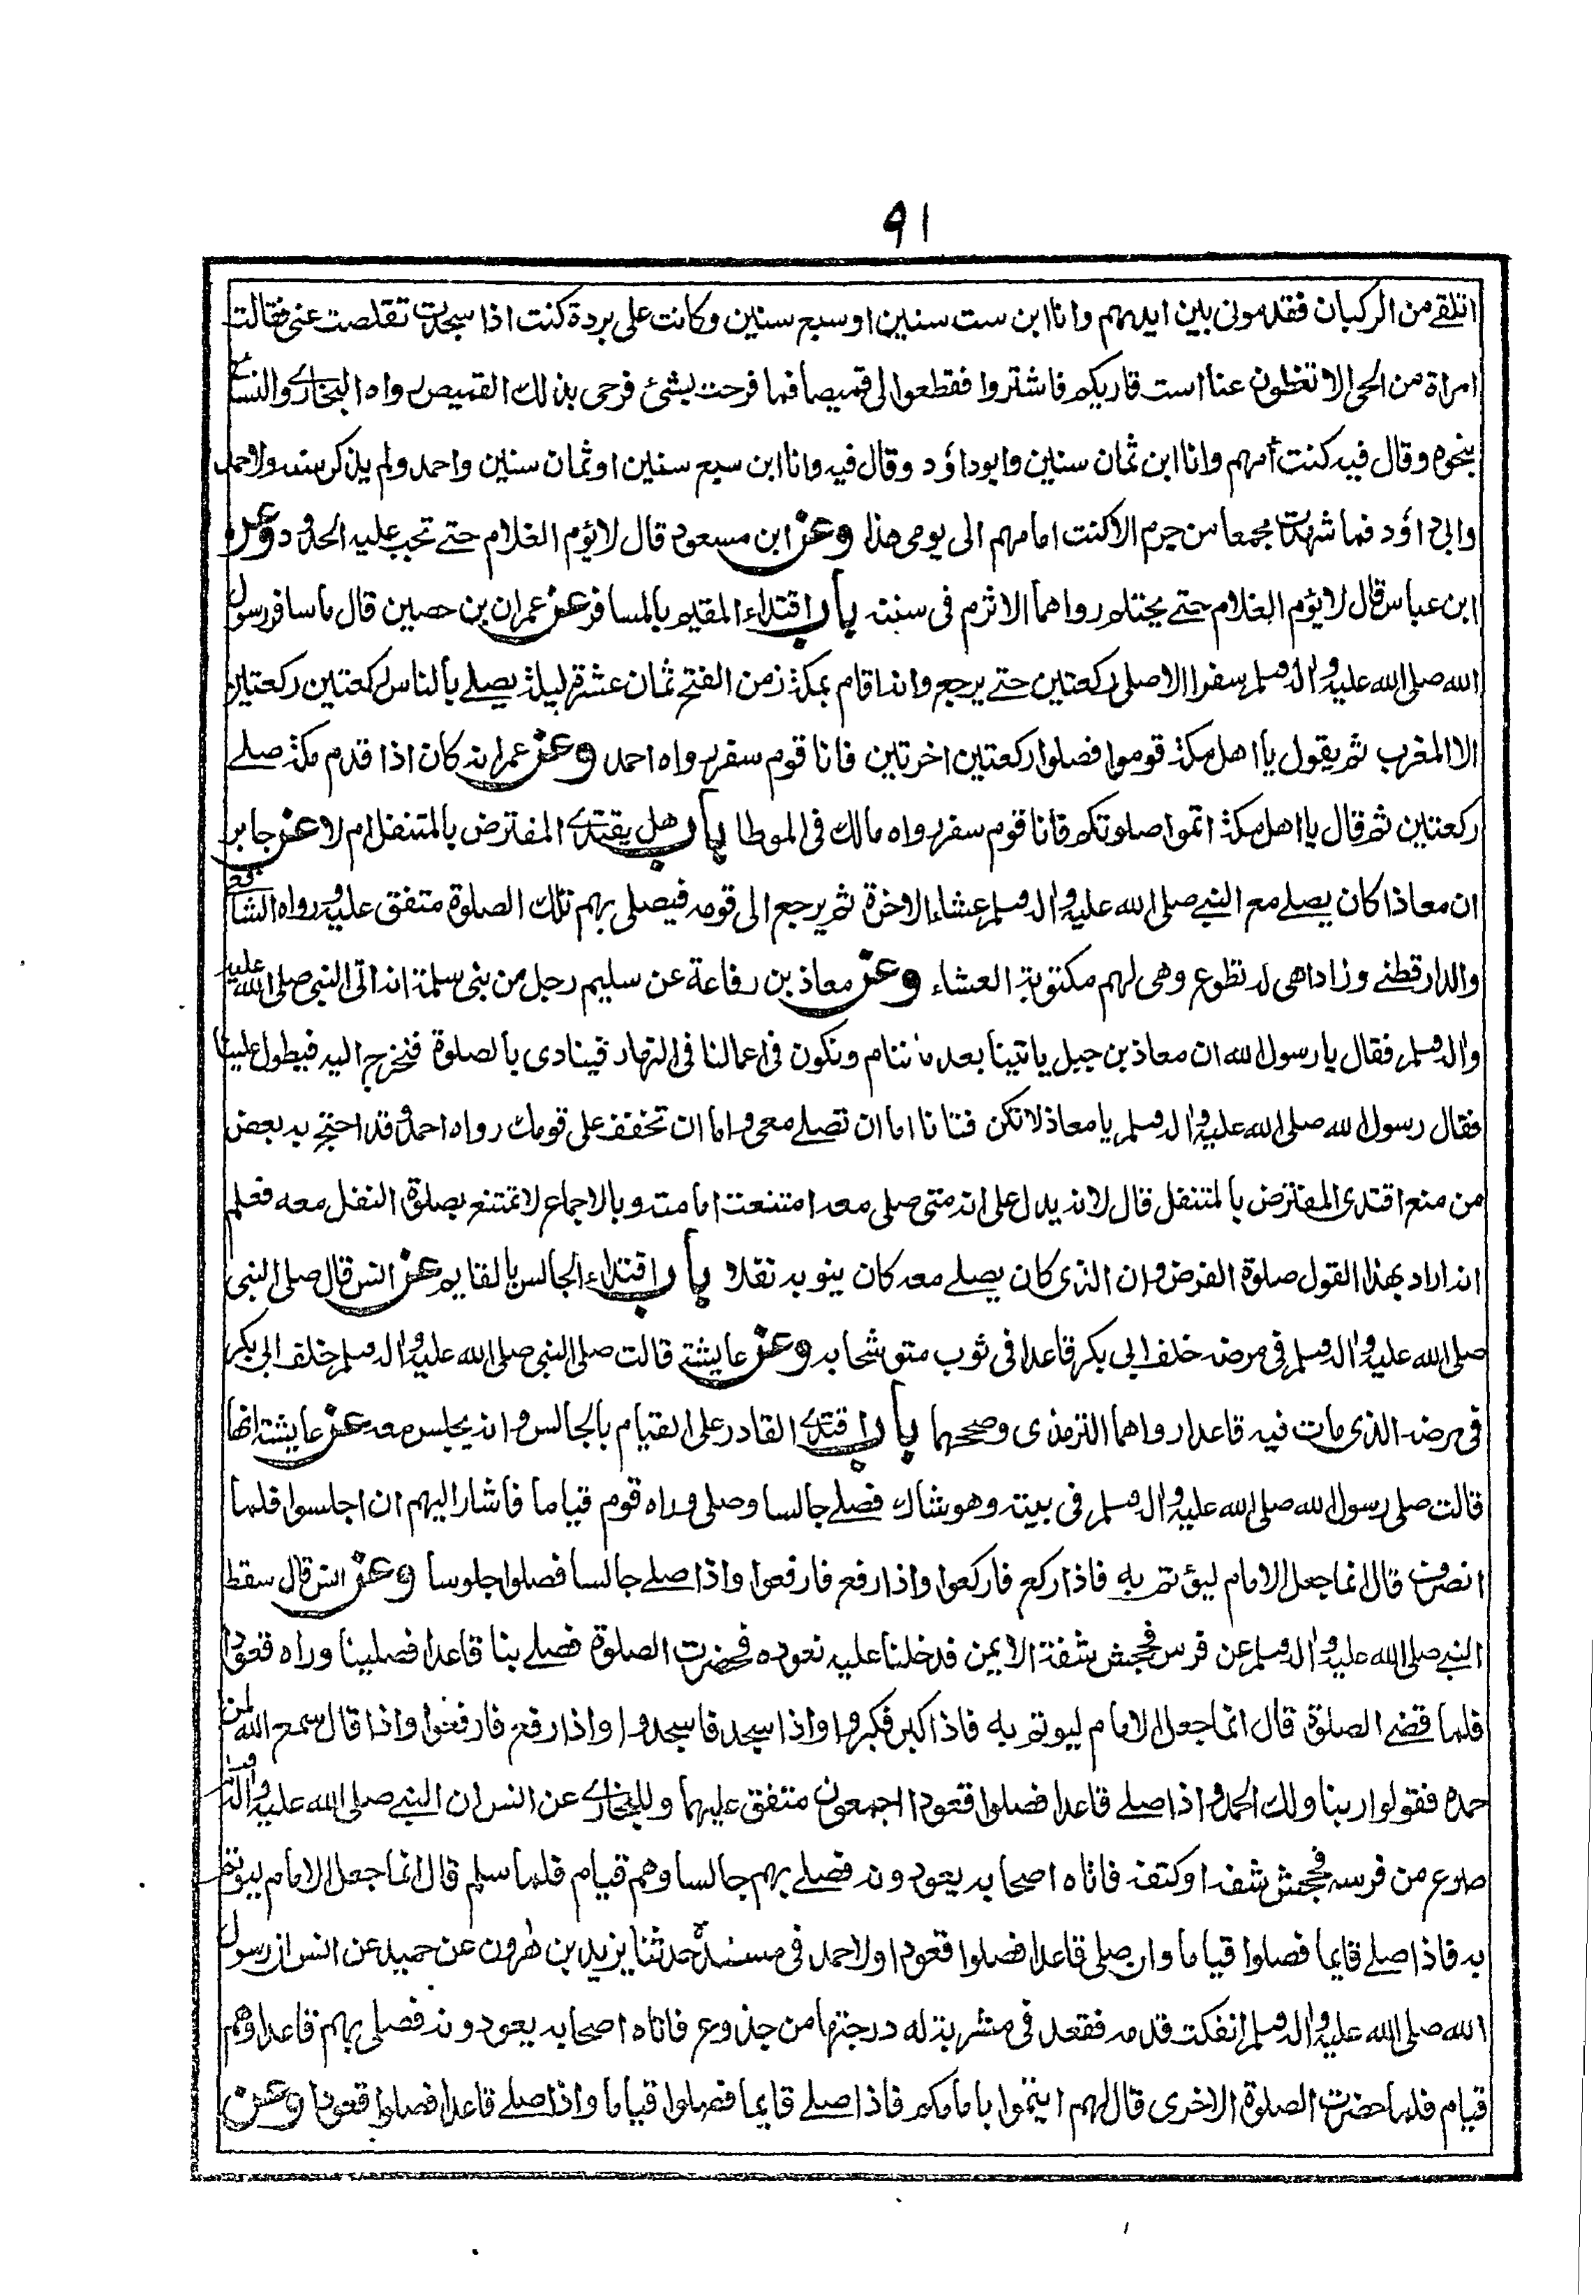 ٩١
اتلقے من الركبان فقدمونی بین ایدیهم وانا ابن ست سنین او سبع سنین وكانت علی بردة كنت اذا سجدت تقلصت عنی فقالت
امراة من الحی الا تغطون عنا است قاریكم فاشتروا فقطعوا لی قمیصا فما فرحت بشئ فرحی بذلك القمیص رواه البخارے والنسائی
بنحوه وقال فیه كنت أمهم وانا ابن ثمان سنین وابوداؤد وقال فیه وانا ابن سبع سنین او ثمان سنین واحمد ولم یذكر سنه ولاحمد
وابی داؤد فما شهدت مجمعا من جرم الا كنت امامهم الی یومی هذا وعن ابن مسعود قال لا یؤم الغلام حتے تجب علیه الحدود وعن
ابن عباس قال لا یؤم الغلام حتے یحتلم رواهما الاثرم فی سننه باب اقتداء المقیم بالمسافر عن عمران بن حصین قال ما سافر رسول
الله صلی الله علیه واله وسلم سفرا الا صلی ركعتین حتے یرجع وانه اقام بمكة زمن الفتح ثمان عشرة لیلة یصلے بالناس ركعتین ركعتین
الا المغرب ثم یقول یا اهل مكة قوموا فصلوا ركعتین اخرتین فانا قوم سفر رواه احمد وعن عمر انه كان اذا قدم مكة صلے
ركعتین ثم قال یا اهل مكة اتموا صلوتكم فانا قوم سفر رواه مالك فی الموطا باب هل یقتدے المفترض بالمتنفل ام لا عن جابر
ان معاذا كان یصلے مع النبے صلی الله علیه واله وسلم عشاء الاخرة ثم یرجع الی قومه فیصلی بهم تلك الصلوة متفق علیه ورواه الشافعی
والدارقطنے وزادا هی له تطوع وهی لهم مكتوبة العشاء وعن معاذ بن رفاعة عن سلیم رجل من بنی سلمة انه اتی النبی صلی الله علیه
واله وسلم فقال یا رسول الله ان معاذ بن جبل یاتینا بعد ما ننام ونكون فی اعمالنا فی النهار فینادی بالصلوة فنخرج الیه فیطول علینا
فقال رسول الله صلی الله علیه واله وسلم یا معاذ لا تكن فتانا اما ان تصلے معی واما ان تخفف علی قومك رواه احمد وقد احتج به بعض
من منع اقتدی المفترض بالمتنفل قال لانه یدل علی انه متی صلی معه امتنعت امامته وبالاجماع لا تمتنع بصلوة النفل معه فعلم
انه اراد بهذا القول صلوة الفرض وان الذی كان یصلے معه كان ینویه نفلا باب اقتداء الجالس بالقایم عن انس قال صلی النبی
صلی الله علیه واله وسلم فی مرضه خلف ابی بكر قاعدا فی ثوب متوشحا به وعن عایشة قالت صلی النبی صلی الله علیه واله وسلم خلف ابی بكر
فی مرضه الذی مات فیه قاعدا رواهما الترمذی وصححهما باب اقتدے القادر علی القیام بالجالس وانه یجلس معه عن عایشة انها
قالت صلی رسول الله صلی الله علیه واله وسلم فی بیته وهو شاك فصلے جالسا وصلی وراه قوم قیاما فاشار الیهم ان اجلسوا فلما
انصرف قال انما جعل الامام لیؤتم به فاذا ركع فاركعوا واذا رفع فارفعوا واذا صلے جالسا فصلوا جلوسا وعن انس قال سقط
النبے صلی الله علیه واله وسلم عن فرس فجحش شقه الایمن فدخلنا علیه نعوده فحضرت الصلوة فصلے بنا قاعدا فصلینا وراه قعودا
فلما قضے الصلوة قال انما جعل الامام لیوتم به فاذا كبر فكبروا واذا سجد فاسجدوا واذا رفع فارفعوا واذا قال سمع الله لمن
حمده فقولوا ربنا ولك الحمد واذا صلے قاعدا فصلوا قعودا اجمعون متفق علیهما وللبخارے عن انس ان النبے صلی الله علیه واله وسلم
صرع من فرسه فجحش شقه او كتفه فاتاه اصحابه یعودونه فصلے بهم جالسا وهم قیام فلما سلم قال انما جعل الامام لیوتم
به فاذا صلے قایما فصلوا قیاما وان صلی قاعدا فصلوا قعودا ولاحمد فی مسنده حدثنا یزید بن هرون عن حمید عن انس ان رسول
الله صلی الله علیه واله وسلم انفكت قدمه فقعد فی مشربة له درجتها من جذوع فاتاه اصحابه یعودونه فصلی بهم قاعدا وهم
قیام فلما حضرت الصلوة الاخری قال لهم ایتموا بامامكم فاذا صلے قایما فصلوا قیاما واذا صلے قاعدا فصلوا قعودا وعن